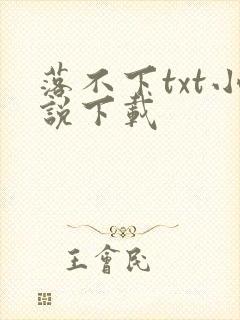 落不下txt小
說下載
王會民